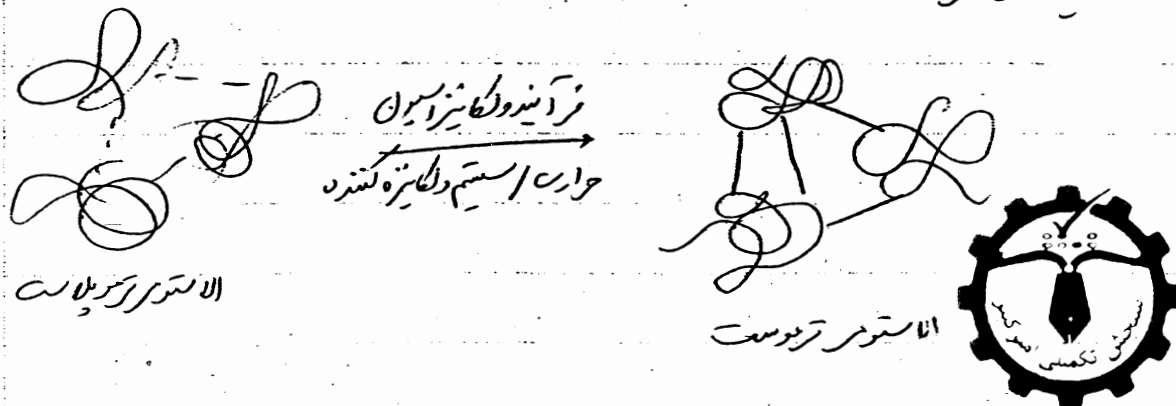 فرآیند ولکانیزاسیون
حرارت / سیستم ولکانیزه کننده
الاستومر ترموپلاست
الاستومر ترموست
تکمیلی